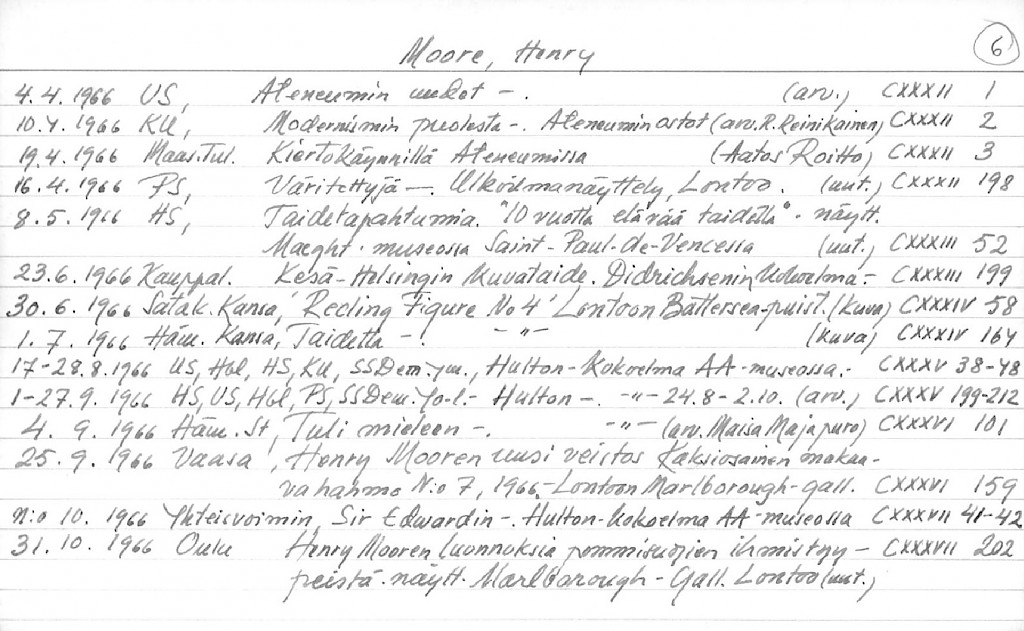 6
Moore, Henry
4.4.1966 US, Ateneumin uudet -. (arv.) CXXXII 1
10.4.1966 KU, Modernismin puolesta -. Ateneumin ostot (arv. R. Reinikainen) CXXXII 2
19.4.1966 Maas.Tul. Kiertokäynnillä Ateneumissa (Aatos Roitto) CXXXII 3
16.4.1966 PS, Väritettyjä -. Ulkoilmanäyttely, Lontoo. (uut.) CXXXII 198
8.5.1966 HS, Taidetapahtumia. "10 vuotta elävää taidetta" - näytt.
Maeght-museossa Saint-Paul-de-Vencessa (uut.) CXXXIII 52
23.6.1966 Kauppal. Kesä-Helsingin kuvataide. Didrichsenin kokoelma - CXXXIII 199
30.6.1966 Satak. Kansa, 'Recling Figure No 4' Lontoon Battersea-puist. (kuva) CXXXIV 58
1.7.1966 Häm. Kansa, Taidetta -. -"- (kuva) CXXXIV 164
17-28.8.1966 US, Hbl, HS, KU, SSDem. ym., Hulton-kokoelma AA-museossa.- CXXXV 38-48
1-27.9.1966 HS, US, Hbl, PS, SSDem. Yo-l.- Hulton -. -"- 24.8-2.10. (arv.) CXXXV 199-212
4.9.1966 Häm. St, Tuli mieleen -. -"- (arv. Maisa Majapuro) CXXXVI 101
25.9.1966 Vaasa, Henry Mooren uusi veistos Kaksiosainen makaa-
va hahmo N:o 7, 1966.- Lontoon Marlborough-gall. CXXXVI 159
N:o 10. 1966 Yhteisvoimin, Sir Edwardin -. Hulton-kokoelma AA-museossa CXXXVII 41-42
31.10.1966 Oulu Henry Mooren luonnoksia pommisuojien ihmistyy- CXXXVII 202
peistä - näytt. Marlborough-Gall. Lontoo (uut.)